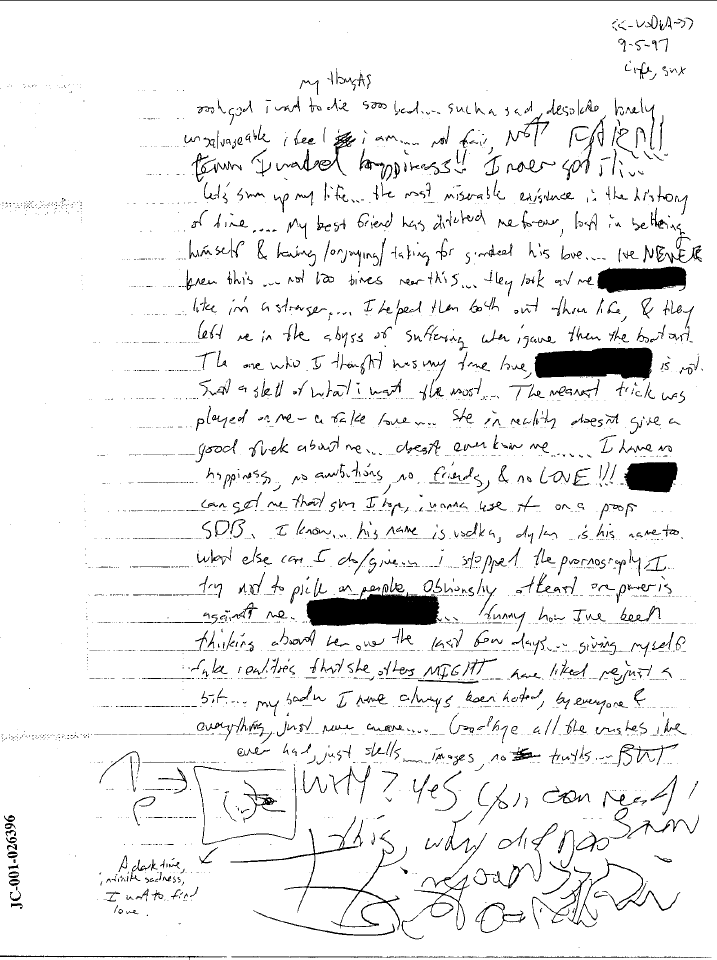 <-VoDkA->
9-5-97
Life, sux
my thoughts
oooh god i want to die sooo bad.... such a sad, desolate, lonely
unsalvageable i feel i am.... not fair, NOT FAIR!!!
I wanted happiness!! I never got it...
Let's sum up my life.... the most miserable existence in the history
of time.... My best friend has ditched me forever, lost in bettering
himself & having/enjoying/taking for granted his love.... Ive NEVER
knew this.... not 100 times near this.... they look at me
like i'm a stranger.... I helped them both out thru life, & they
left me in the abyss of suffering when i gave them the boot out.
The one who I thought was my true love, is not.
Just a shell of what i want the most.... The meanest trick was
played on me - a fake love.... She in reality doesnt give a
good fuck about me.... doesnt even know me..... I have no
happiness, no ambitions, no friends, & no LOVE!!!
can get me that gun I hope, i wanna use it on a poor
SOB. I know.... his name is vodka, dylan is his name too.
what else can I do/give.... i stopped the pornography I
try not to pick on people, Obviously atleast one power is
against me. .... funny how Ive been
thinking about her over the last few days.... giving myself
fake realities that she, others MIGHT have liked me just a
bit.... my bad I have always been hated, by everyone &
everything, just never aware.... Goodbye all the crushes ive
ever had, just shells.... images, no truths.... BUT
WHY? Yes, you can read
this, why did
A dark time,
infinite sadness,
I want to find
love.
JC-001-026396